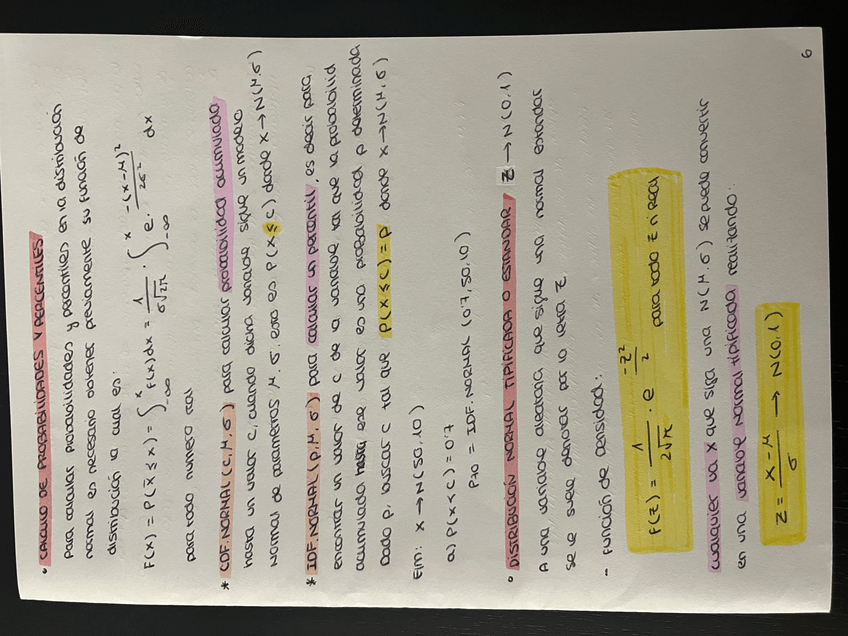 • CALCULO DE PROBABILIDADES Y PERCENTILES
Para calcular probabilidades y percentiles en la distribución
normal es necesario obtener previamente su función de
distribución la cual es:
F(x) = P(X ≤ x) = ∫_{-∞}^{x} f(x)dx = 1/(σ√2π) · ∫_{-∞}^{x} e · -(x-μ)²/2σ² dx
para todo numero real
* CDF.NORMAL (c, μ, σ) para calcular probabilidad acumulada
hasta un valor c, cuando dicha variable sigue un modelo
Normal de parámetros μ, σ. esto es P(X ≤ c) donde X → N(μ, σ)
* IDF.NORMAL (p, μ, σ) para calcular un percentil, es decir para
encontrar un valor de c de la variable tal que la probabilid
acumulada hasta ese valor es una probabilidad p determinada
Dado p, buscar c tal que P(X ≤ c) = p donde X → N(μ, σ)
Ejm: X → N(50, 10)
a) P(X < c) = 0'7
P70 = IDF.NORMAL (0'7, 50, 10)
• DISTRIBUCIÓN NORMAL TIPIFICADA O ESTANDAR, Z → N(0, 1)
A una variable aleatoria que sigue una normal estandar
se le suele denotar por la letra Z.
- Función de densidad:
f(z) = 1/(2√π) · e^(-z²/2) para todo z ∩ Real
Cualquier va X que siga una N(μ, σ) se puede convertir
en una variable normal tipificada realizando:
Z = (x-μ)/σ → N(0, 1)
6